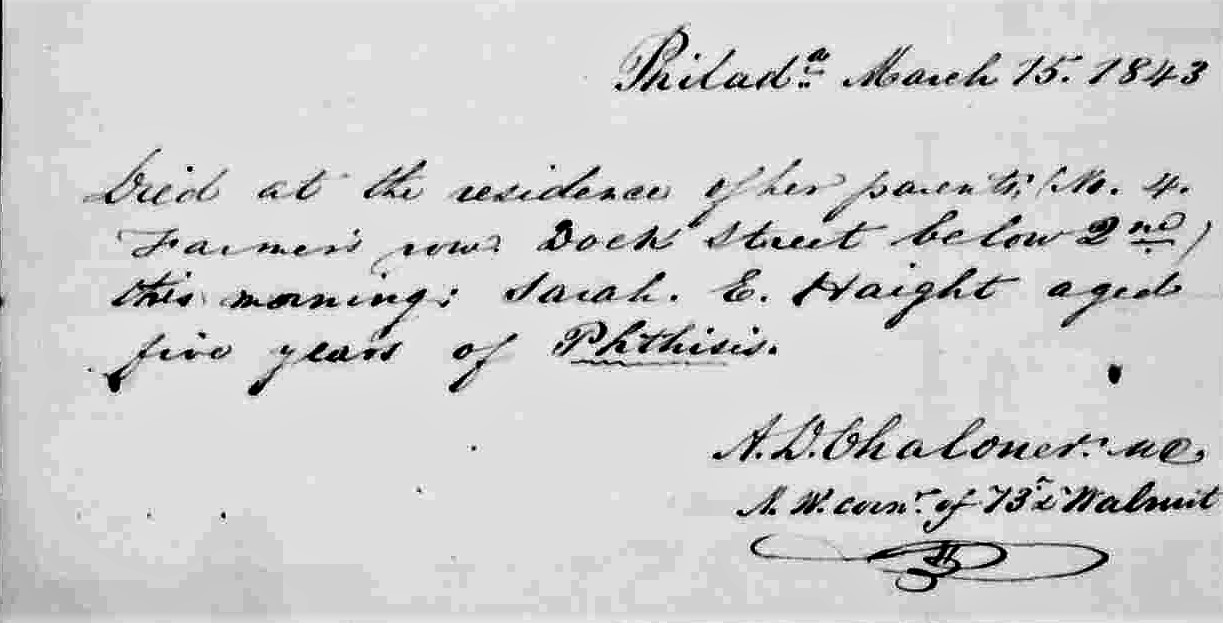 Philadᵃ March 15. 1843
Died at the residence of her parents, (No. 4.
Farmer's row. Dock Street below 2nd)
this morning: Sarah. E. Haight aged
five years of Phthisis.
A. D. Chaloner. MD.
N. W. cornʳ. of & Walnut